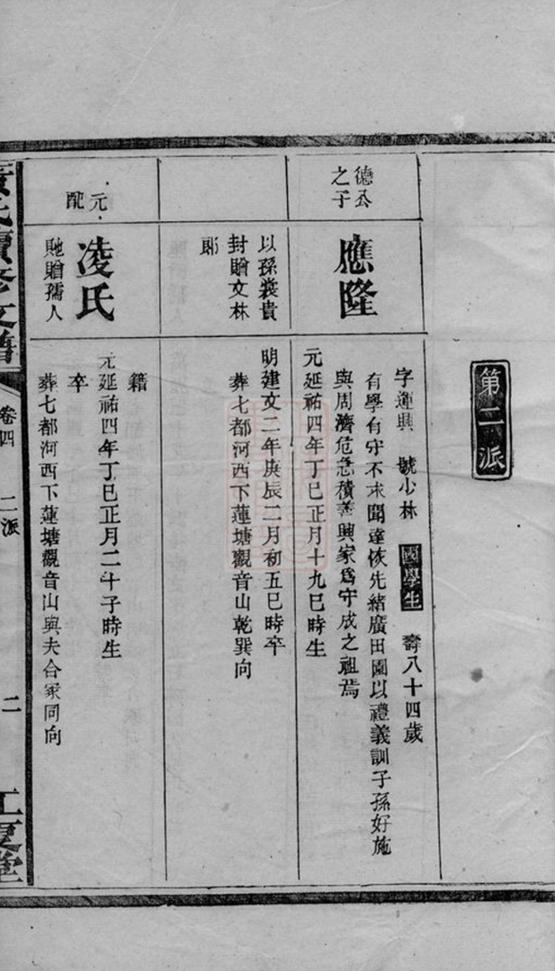 第二派
德公
之子
應隆
字運興 號少林 國學生 壽八十四歲
有學有守不求聞達恢先緒廣田園以禮義訓子孫好施
與周濟危急積善興家爲守成之祖焉
元延祐四年丁巳正月十九巳時生
以孫裳貴
封贈文林
郎
明建文二年庚辰二月初五巳時卒
葬七都河西下蓮塘觀音山乾巽向
元
配
凌氏
貤贈孺人
籍
元延祐四年丁巳正月二十子時生
卒
葬七都河西下蓮塘觀音山與夫合冢同向
黃氏續修支譜
卷四 二派 二
江夏堂